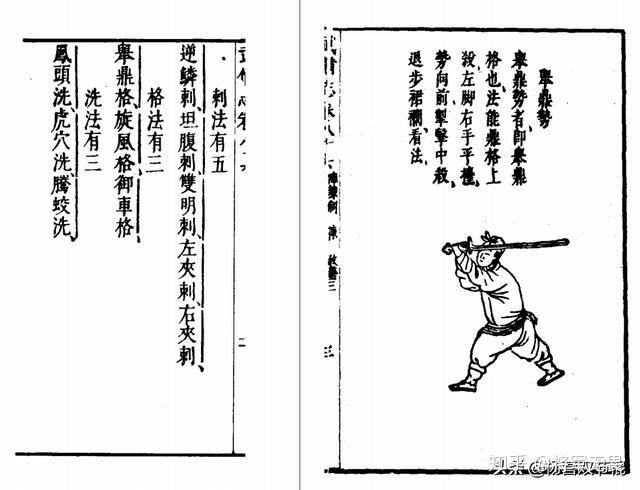 刺法有五
逆鱗刺、坦腹刺、雙明刺、左夾刺、右夾刺、
格法有三
舉鼎格、旋風格、御車格
洗法有三
鳳頭洗、虎穴洗、騰蛟洗、
二
舉鼎勢
舉鼎勢者即舉鼎
格也法能鼎格上
殺左脚右手平擡
勢向前掣擊中殺
退步裙襴看法
陣練制 練 教藝三
三
知乎
头条